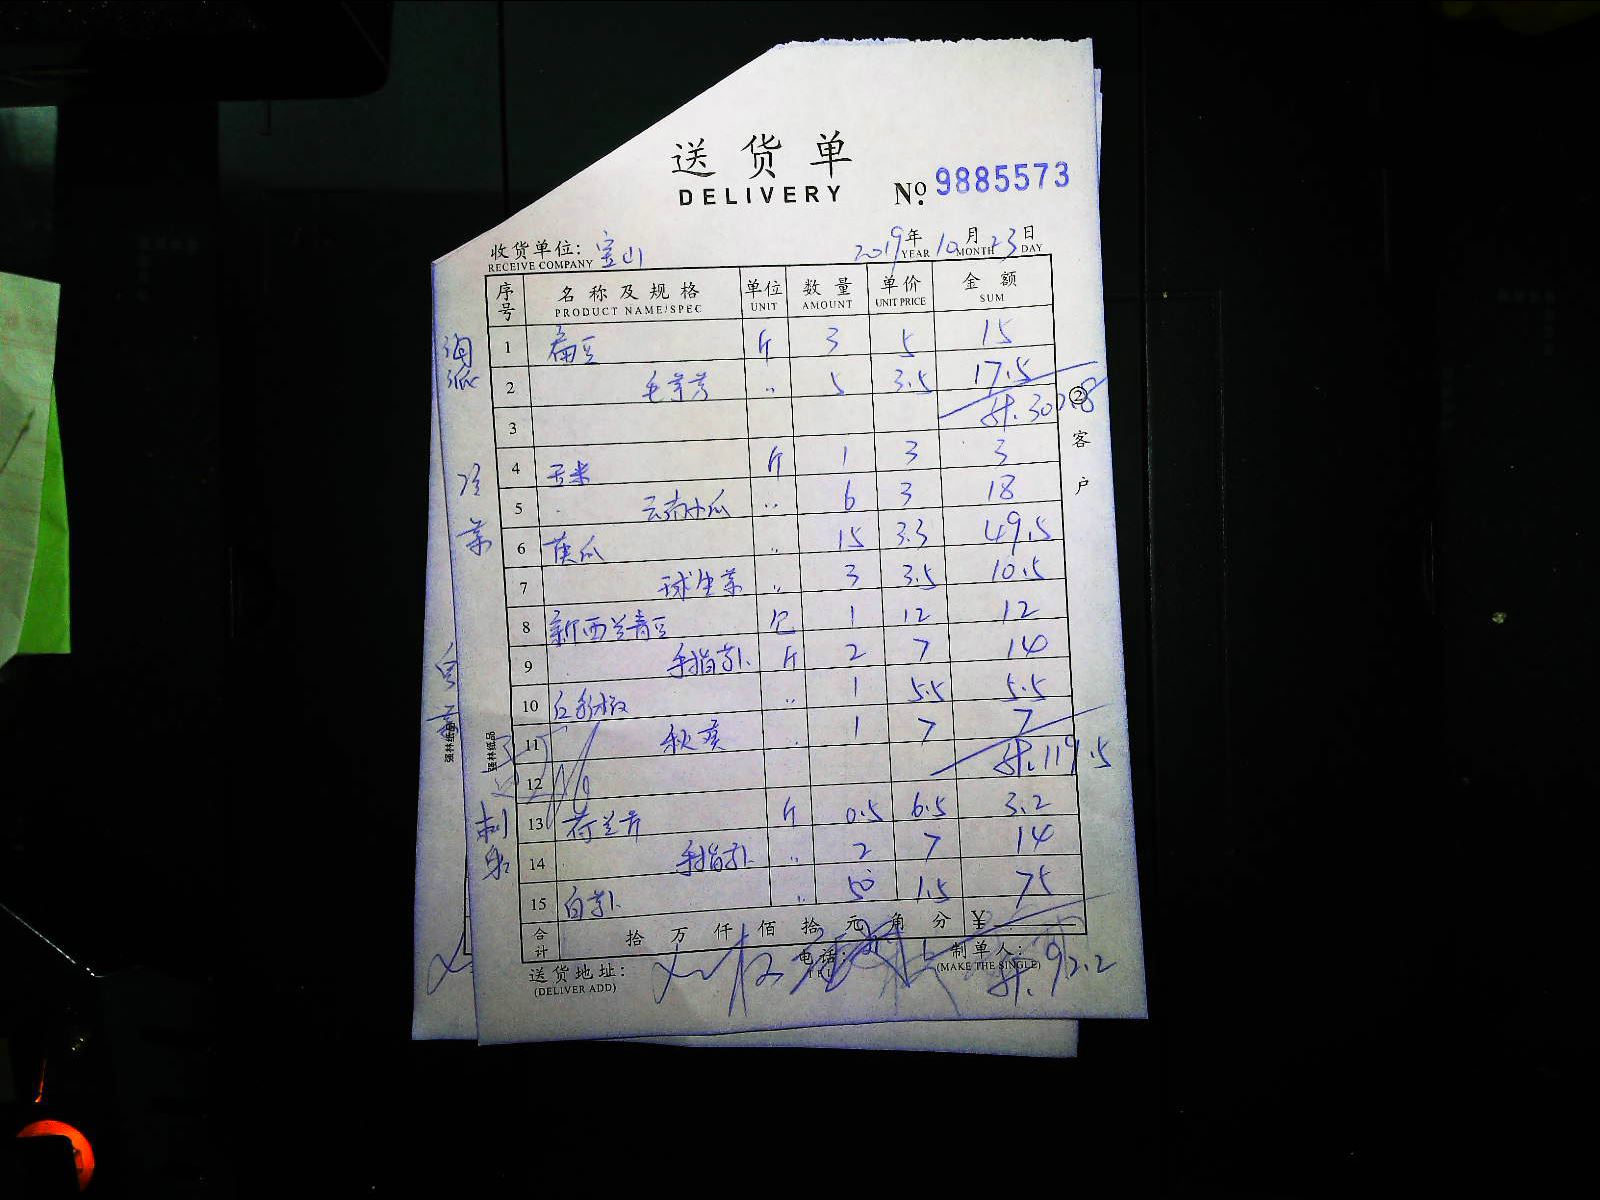 送货单
DELIVERY
No. 9885573
收货单位: 宝山
RECEIVE COMPANY
2019年 10月 23日
YEAR MONTH DAY
序号 名称及规格 单位 数量 单价 金额
PRODUCT NAME/SPEC UNIT AMOUNT UNIT PRICE SUM
1 扁豆 斤 3 5 15
2 毛芋艿 〃 5 3.5 17.5
3
4 玉米 斤 1 3 3
5 云南小瓜 〃 6 3 18
6 黄瓜 〃 15 3.3 49.5
7 球生菜 〃 3 3.5 10.5
8 新西兰青豆 包 1 12 12
9 手指萝卜 斤 2 7 14
10 红彩椒 〃 1 5.5 5.5
11 秋葵 〃 1 7 7
12 计.119.5
13 荷兰芹 斤 0.5 6.5 3.2
14 手指萝卜 〃 2 7 14
15 白萝卜 〃 50 1.5 75
合计 拾 万 仟 佰 拾 元 角 分 ¥
计.92.2
送货地址:
(DELIVER ADD)
电话:
TEL
制单人:
(MAKE THE SINGLE)
②客户
冷菜
刺身
强林纸品
强林纸品